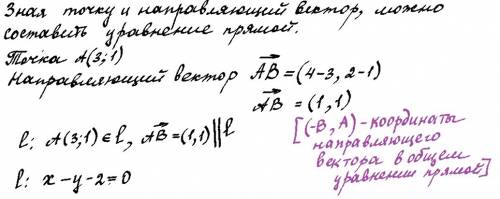 Зная точку и направляющий вектор, можно
составить уравнение прямой.
Точка A(3;1)
Направляющий вектор AB⃗ = (4-3, 2-1)
AB⃗ = (1, 1)
l: A(3;1) ∈ l, AB⃗ = (1,1) || l
l: x - y - 2 = 0
[(-B, A) - координаты
направляющего
вектора в общем
уравнение прямой]